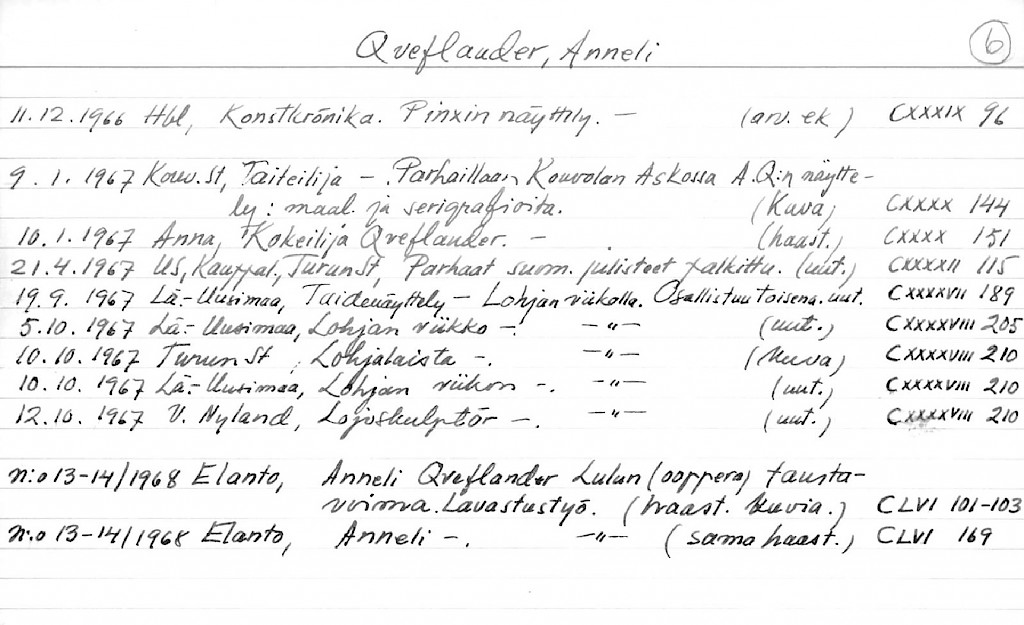 Qveflander, Anneli 6
11.12.1966 Hbl, Konstkrönika. Pinxin näyttly. – (arv. ek) CXXXIX 96
9.1.1967 Kouv.St, Taiteilija –. Parhaillaan Kouvolan Askossa A.Q:n näytte-
ly: maal. ja serigrafioita. (Kuva) CXXXX 144
10.1.1967 Anna, Kokeilija Qveflander. – (haast.) CXXXX 151
21.4.1967 US, Kauppal, TurunSt, Parhaat suom. julisteet palkittu. (uut.) CXXXXII 115
19.9.1967 Lä.-Uusimaa, Taidenäyttely – Lohjan viikolla. Osallistuu toisena. uut. CXXXXVII 189
5.10.1967 Lä.-Uusimaa, Lohjan viikko –. –"– (uut.) CXXXXVIII 205
10.10.1967 TurunSt, Lohjalaista –. –"– (kuva) CXXXXVIII 210
10.10.1967 Lä.-Uusimaa, Lohjan viikon –. –"– (uut.) CXXXXVIII 210
12.10.1967 V. Nyland, Lojoskulptör –. –"– (uut.) CXXXXVIII 210
n:o 13-14/1968 Elanto, Anneli Qveflander Lulun (ooppera) tausta-
voima. Lavastustyö. (haast. kuvia.) CLVI 101-103
n:o 13-14/1968 Elanto, Anneli –. –"– (sama haast.) CLVI 169